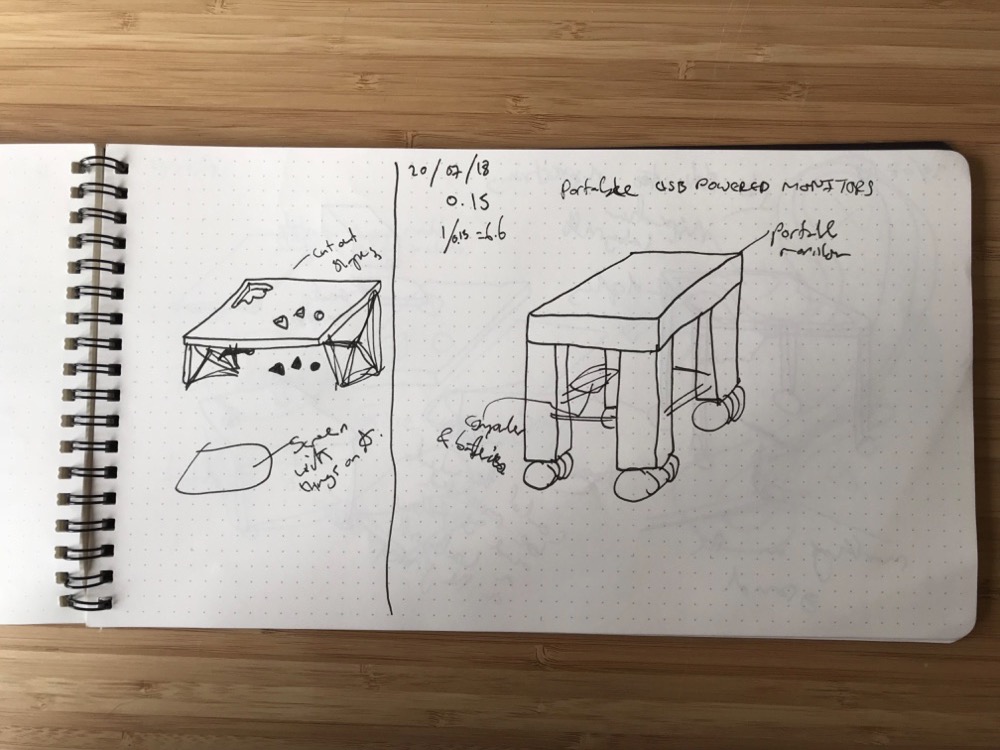 cut out
shapes
Screen
with
things on it.
20/07/18
0.15
1/0.15 = 6.6
Portable USB POWERED MONITORS
Portable
monitor
& batteries